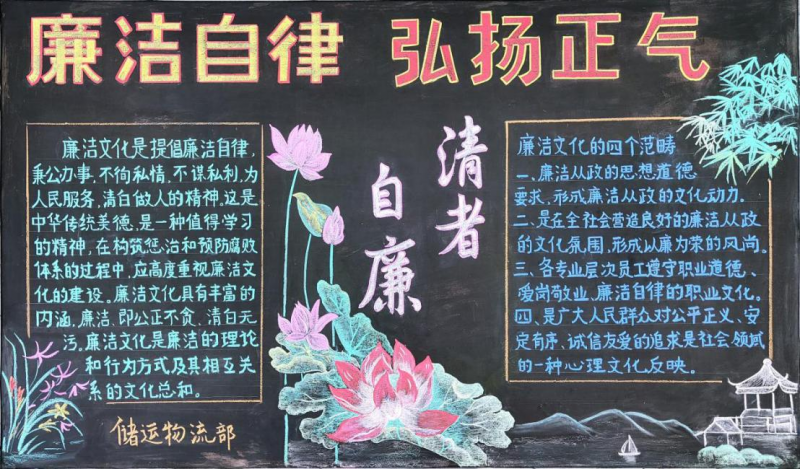 廉洁自律 弘扬正气
廉洁文化是提倡廉洁自律,
秉公办事、不徇私情、不谋私利,为
人民服务,清白做人的精神。这是
中华传统美德,是一种值得学习
的精神,在构筑惩治和预防腐败
体系的过程中,应高度重视廉洁文
化的建设。廉洁文化具有丰富的
内涵,廉洁,即公正不贪、清白无
污。廉洁文化是廉洁的理论
和行为方式及其相互关
系的文化总和。
储运物流部
清者
自廉
廉洁文化的四个范畴
一、廉洁从政的思想道德
要求,形成廉洁从政的文化动力。
二、是在全社会营造良好的廉洁从政
的文化氛围,形成以廉为荣的风尚。
三、各专业层次员工遵守职业道德、
爱岗敬业、廉洁自律的职业文化。
四、是广大人民群众对公平正义、安
定有序、诚信友爱的追求是社会领域
的一种心理文化反映。